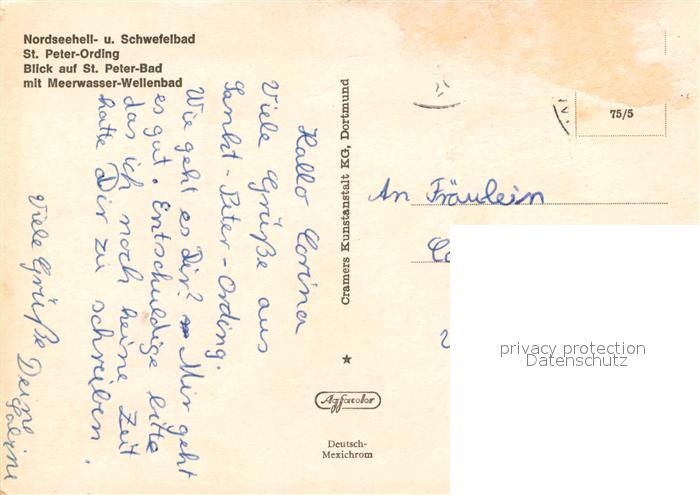 Nordseeheil- u. Schwefelbad
St. Peter-Ording
Blick auf St. Peter-Bad
mit Meerwasser-Wellenbad
Hallo Corina
Viele Grüße aus
Sankt-Peter-Ording.
Wie geht es Dir? Mir geht
es gut. Entschuldige bitte
das ich noch keine Zeit
hatte Dir zu schreiben.
Viele Grüße Deine
Cramers Kunstanstalt KG, Dortmund
Agfacolor
Deutsch-
Mexichrom
75/5
An Fräulein
privacy protection
Datenschutz